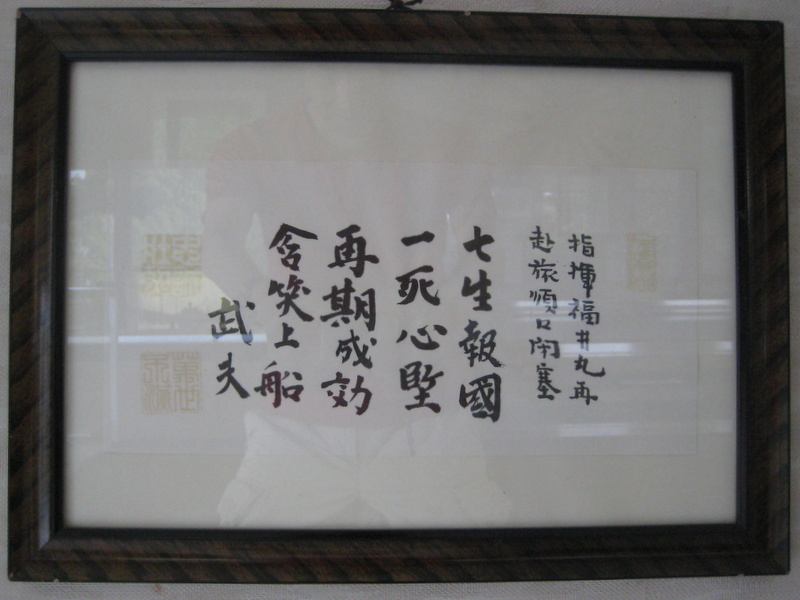 指揮福井丸再
赴旅順口閉塞
七生報國
一死心堅
再期成効
含笑上船
武夫